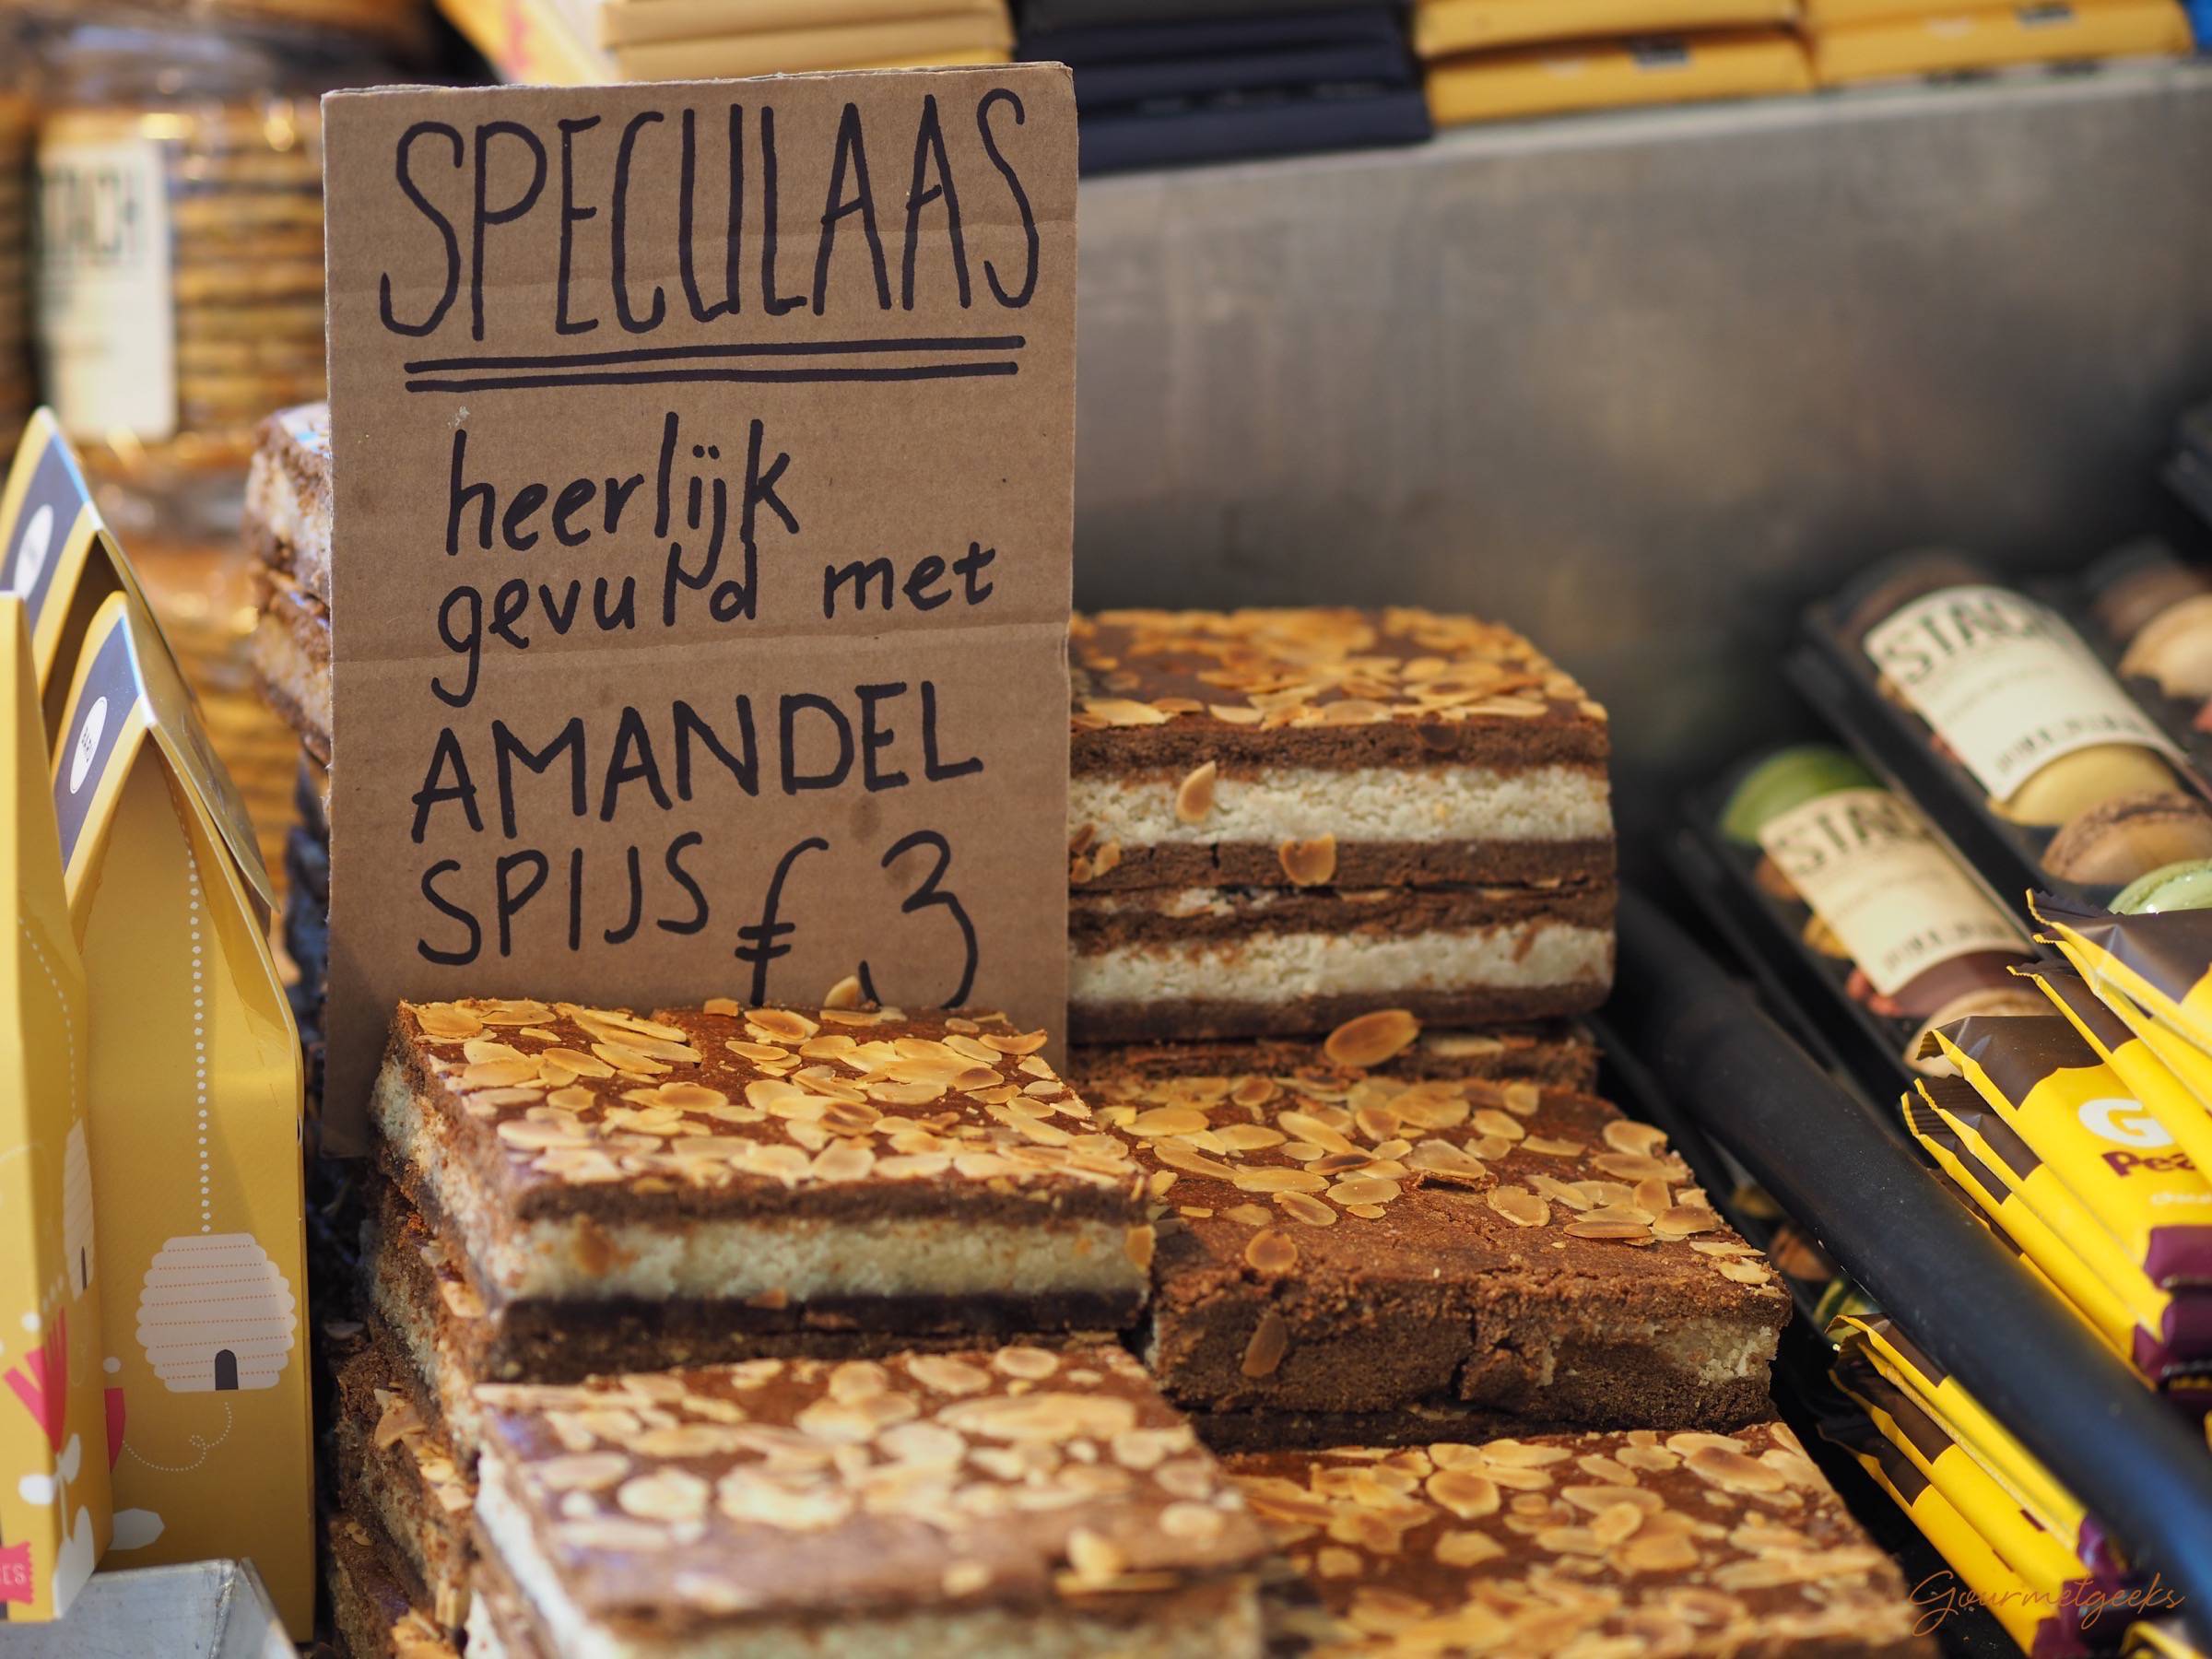 SPECULAAS
heerlijk
gevuld met
AMANDEL
SPIJS € 3
STACH
STACH
G
Gourmetgeeks